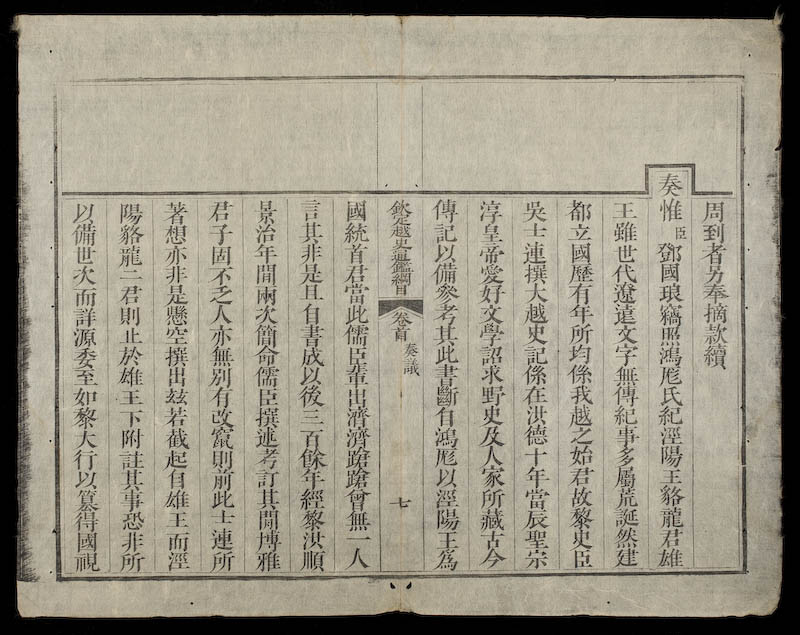 周到者另奉摘款續
奏惟臣鄧國琅竊照鴻厖氏紀涇陽王貉龍君雄
王雖世代遼遠文字無傳紀事多屬荒誕然建
都立國歷有年所均係我越之始君故黎史臣
吳士連撰大越史記係在洪德十年當辰聖宗
淳皇帝愛好文學詔求野史及人家所藏古今
傳記以備參考其此書斷自鴻厖以涇陽王爲
欽定越史通鑑綱目 卷首 奏議 七
國統首君當此儒臣輩出濟濟蹌蹌曾無一人
言其非是且自書成以後三百餘年經黎洪順
景治年間兩次簡命儒臣撰述考訂其間博雅
君子固不乏人亦無別有改竄則前此士連所
著想亦非是懸空撰出玆若截起自雄王而涇
陽貉龍二君則止於雄王下附註其事恐非所
以備世次而詳源委至如黎大行以簒得國視